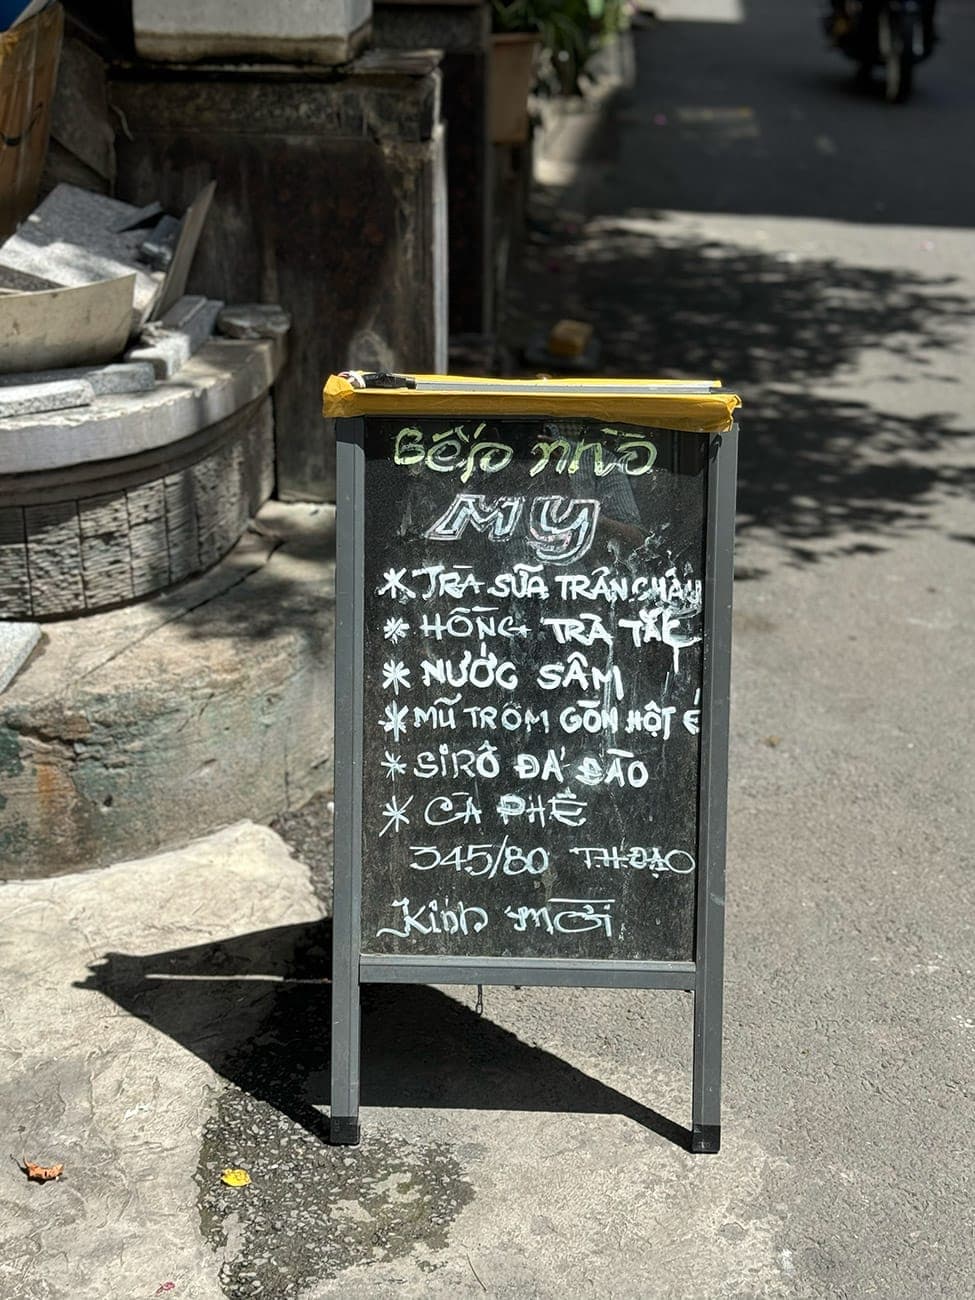 Bếp nhỏ
My
* TRÀ SỮA TRÂN CHÂU
* HỒNG TRÀ TẮC
* NƯỚC SÂM
* MŨ TRÔM GÒN HỘT É
* SIRÔ ĐÁ BÀO
* CÀ PHÊ
345/80 T.H.ĐẠO
Kính mời